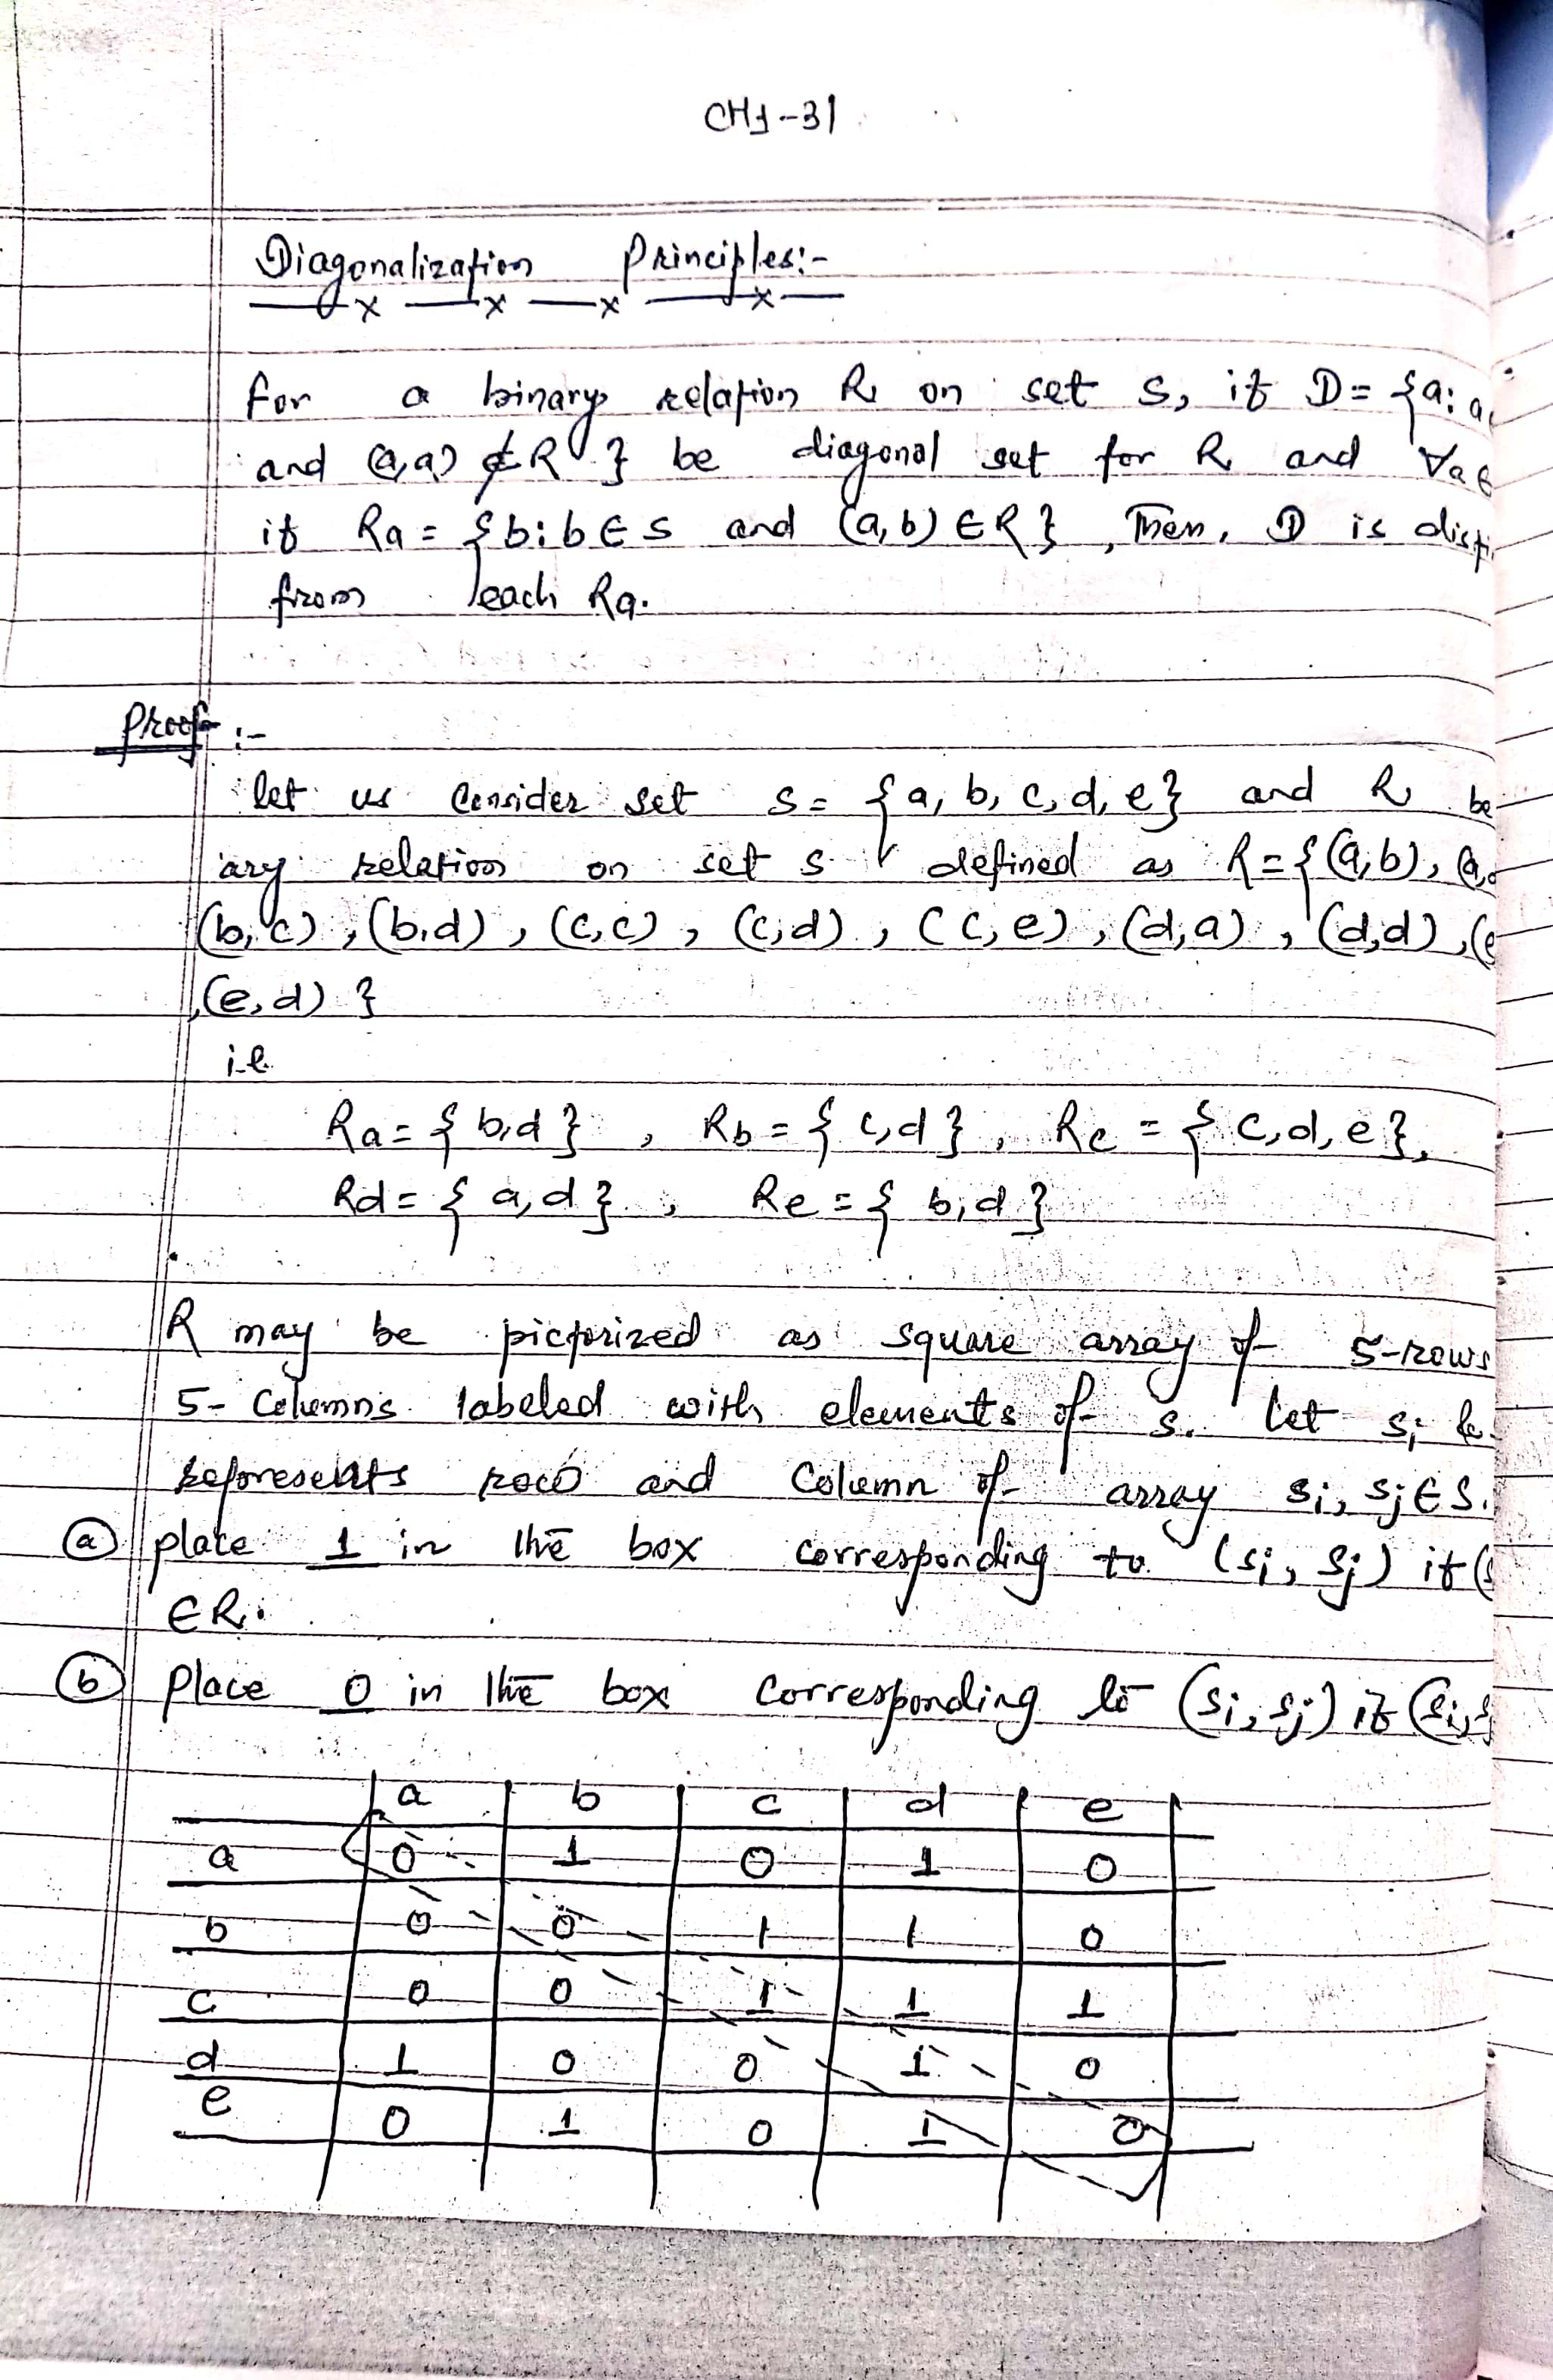 CH1-31
Diagonalization Principles:-
For a binary relation R on set S, if D = {a: a
and (a,a) ∉ R } be diagonal set for R and ∀a ∈
if Ra = {b: b ∈ S and (a,b) ∈ R } , Then, D is
from each Ra.
Proof :-
let us Consider set S = {a, b, c, d, e} and R be
ary relation on set S defined as R = {(a,b), (a,
(b,c) , (b,d) , (c,c) , (c,d) , (c,e) , (d,a) , (d,d) , (e
,(e,d) }
i.e
Ra = { b,d } , Rb = { c,d } , Rc = { c,d,e },
Rd = { a,d } , Re = { b,d }
R may be pictorized as square array of 5-rows
5- Columns labeled with elements of S. let si &
represents row and Column of array si, sj ∈ S.
(a) place 1 in the box corresponding to (si, sj) if (
∈ R.
(b) place 0 in the box Corresponding to (si, sj) if (si, s
a b c d e
a 0 1 0 1 0
b 0 0 1 1 0
c 0 0 1 1 1
d 1 0 0 1 0
e 0 1 0 1 0